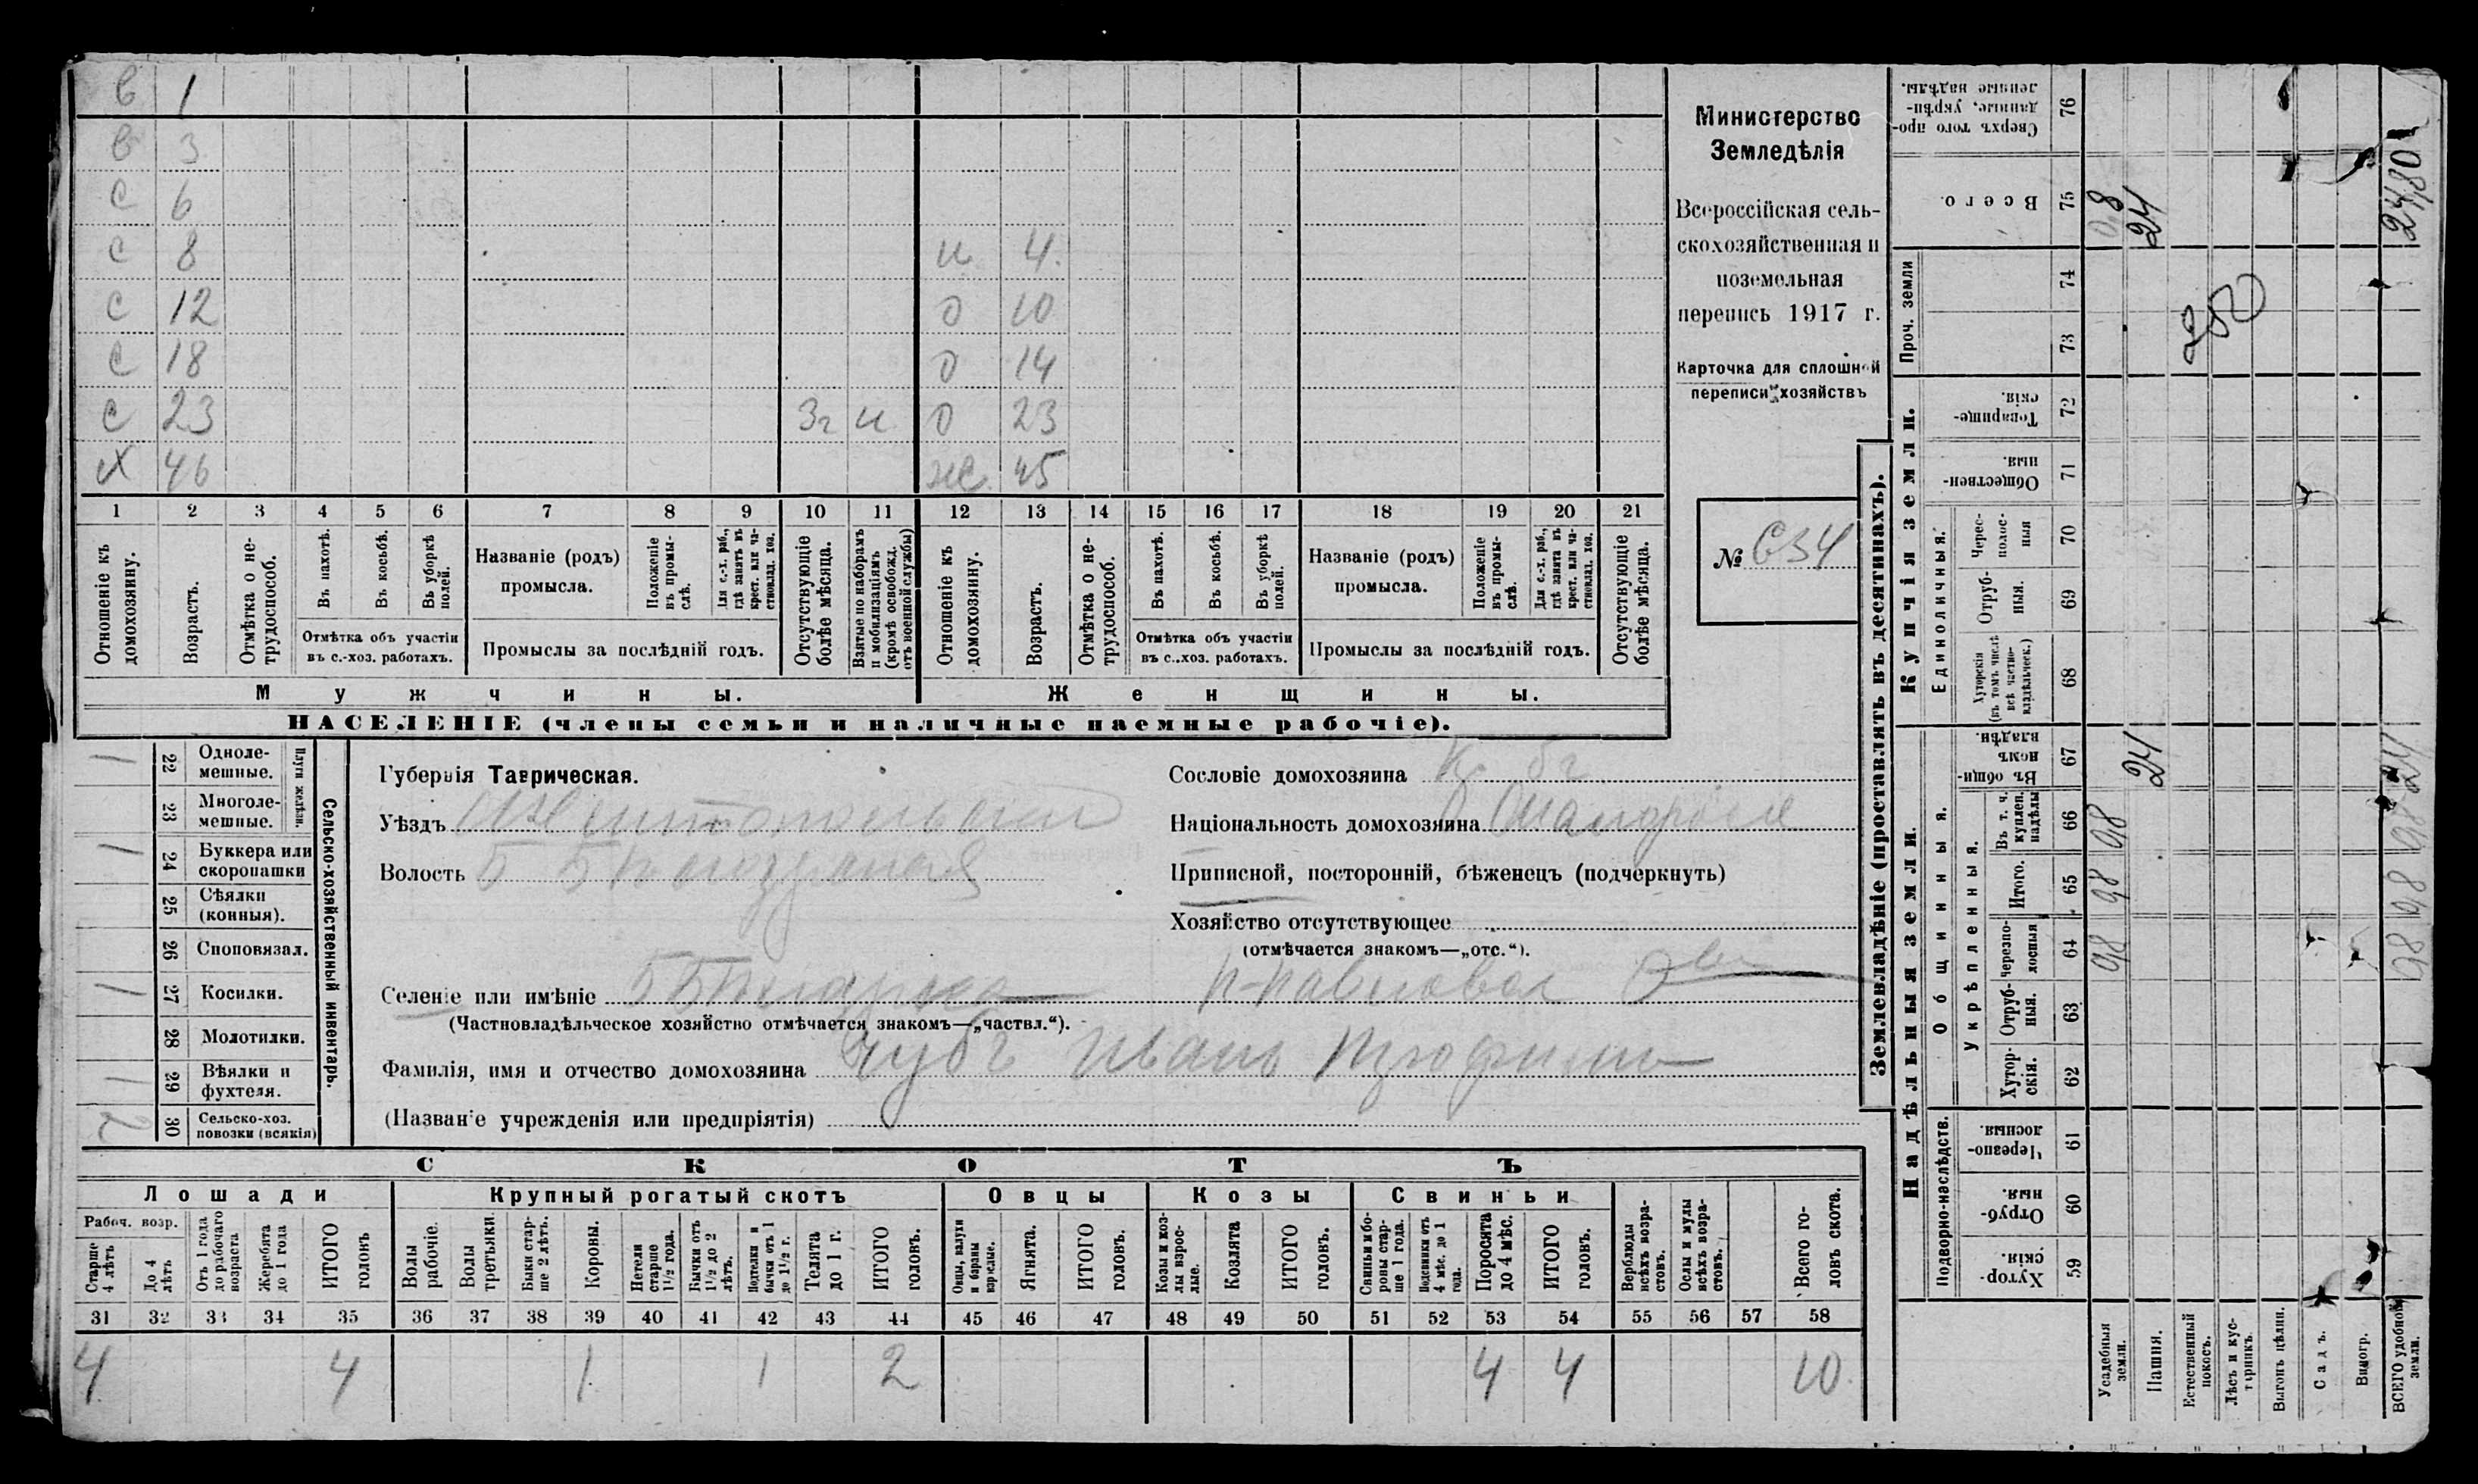 в 1
в 3
с 6
с 8 и 4
с 12 д 10
с 18 д 14
с 23 3г и д 23
х 46 ж 45
1 2 3 4 5 6 7 8 9 10 11 12 13 14 15 16 17 18 19 20 21
Отношеніе къ домохозяину.
Возрастъ.
Отмѣтка о не-трудоспособ.
Въ пахотѣ.
Въ косьбѣ.
Въ уборкѣ полей.
Отмѣтка объ участіи
въ с.-хоз. работахъ.
Названіе (родъ)
промысла.
Положеніе въ промы-слѣ.
Для с.-х. раб., гдѣ занятъ въ крест. или ча-стновлад. хоз.
Промыслы за послѣдній годъ.
Отсутствующіе болѣе мѣсяца.
Взятые по наборамъ и мобилизаціямъ (кромѣ освобожд. отъ военной службы)
Отношеніе къ домохозяину.
Возрастъ.
Отмѣтка о не-трудоспособ.
Въ пахотѣ.
Въ косьбѣ.
Въ уборкѣ полей.
Отмѣтка объ участіи
въ с.-хоз. работахъ.
Названіе (родъ)
промысла.
Положеніе въ промы-слѣ.
Для с.-х. раб., гдѣ занятъ въ крест. или ча-стновлад. хоз.
Промыслы за послѣдній годъ.
Отсутствующіе болѣе мѣсяца.
Мужчины. Женщины.
НАСЕЛЕНІЕ (члены семьи и наличные наемные рабочіе).
Министерство
Земледѣлія
Всероссійская сель-
скохозяйственная и
поземельная
перепись 1917 г.
Карточка для сплошной
переписи хозяйствъ
№ 634
Сельско-хозяйственный инвентарь.
Плуги желѣзн.
22 Одноле-мешные. 1
23 Многоле-мешные.
24 Буккера или скоропашки 1
25 Сѣялки (конныя).
26 Сноповязал.
27 Косилки. 1
28 Молотилки.
29 Вѣялки и фухтеля. 1
30 Сельско-хоз. повозки (всякія) 2
Губернія Таврическая.
Уѣздъ
Волость
Селеніе или имѣніе
(Частновладѣльческое хозяйство отмѣчается знакомъ—„частвл.“).
Фамилія, имя и отчество домохозяина Чубъ Иванъ
(Названіе учрежденія или предпріятія)
Сословіе домохозяина
Національность домохозяина
Приписной, посторонній, бѣженецъ (подчеркнуть)
Хозяйство отсутствующее
(отмѣчается знакомъ—„отс.“).
СКОТЪ
Лошади Крупный рогатый скотъ Овцы Козы Свиньи
Рабоч. возр.
Старше 4 лѣтъ
До 4 лѣтъ
Отъ 1 года до рабочаго возраста
Жеребята до 1 года
ИТОГО головъ
Волы рабочіе.
Волы третьяки.
Быки стар-ше 2 лѣтъ.
Коровы.
Нетели старше 1½ года.
Бычки отъ 1½ до 2 лѣтъ.
Подтелки и бычки отъ 1 до 1½ г.
Телята до 1 г.
ИТОГО головъ.
Овцы, валухи и бараны взрослые.
Ягнята.
ИТОГО головъ.
Козы и коз-лы взрос-лые.
Козлята
ИТОГО головъ.
Свиньи и бо-ровы стар-ше 1 года.
Подсвинки отъ 4 мѣс. до 1 года.
Поросята до 4 мѣс.
ИТОГО головъ.
Верблюды всѣхъ возра-стовъ.
Ослы и мулы всѣхъ возра-стовъ.
Всего го-ловъ скота.
31 32 33 34 35 36 37 38 39 40 41 42 43 44 45 46 47 48 49 50 51 52 53 54 55 56 57 58
4 4 1 1 2 4 4 10
Землевладѣніе (проставлять въ десятинахъ).
Надѣльныя земли.
Подворно-наслѣдств.
Хутор-скія. 59
Отруб-ныя. 60
Черезпо-лосныя. 61
Общинныя.
Укрѣпленныя.
Хутор-скія. 62
Отруб-ныя. 63
черезпо-лосныя 64
Итого. 65
Въ т. ч. куплен. надѣлы 66
Въ общи-номъ владѣн. 67
Купчія земли.
Единоличныя.
Хуторскія (въ томъ числѣ всѣ частно-владѣльческ.) 68
Отруб-ныя. 69
Черес-полос-ныя 70
Обществен-ныя. 71
Товарище-скія. 72
Проч. земли
73 74
Всего. 75
Сверхъ того про-данные, укрѣп-ленные надѣлы. 76
Усадебныя земли. 0,8 0,8 0,8 0,8
Пашня. 24 24
Естественный покосъ.
Лѣсъ и кус-тарникъ.
Выгонъ цѣлин.
Садъ.
Виногр.
ВСЕГО удобной земли. 0,8 0,8 0,8 24 24,80